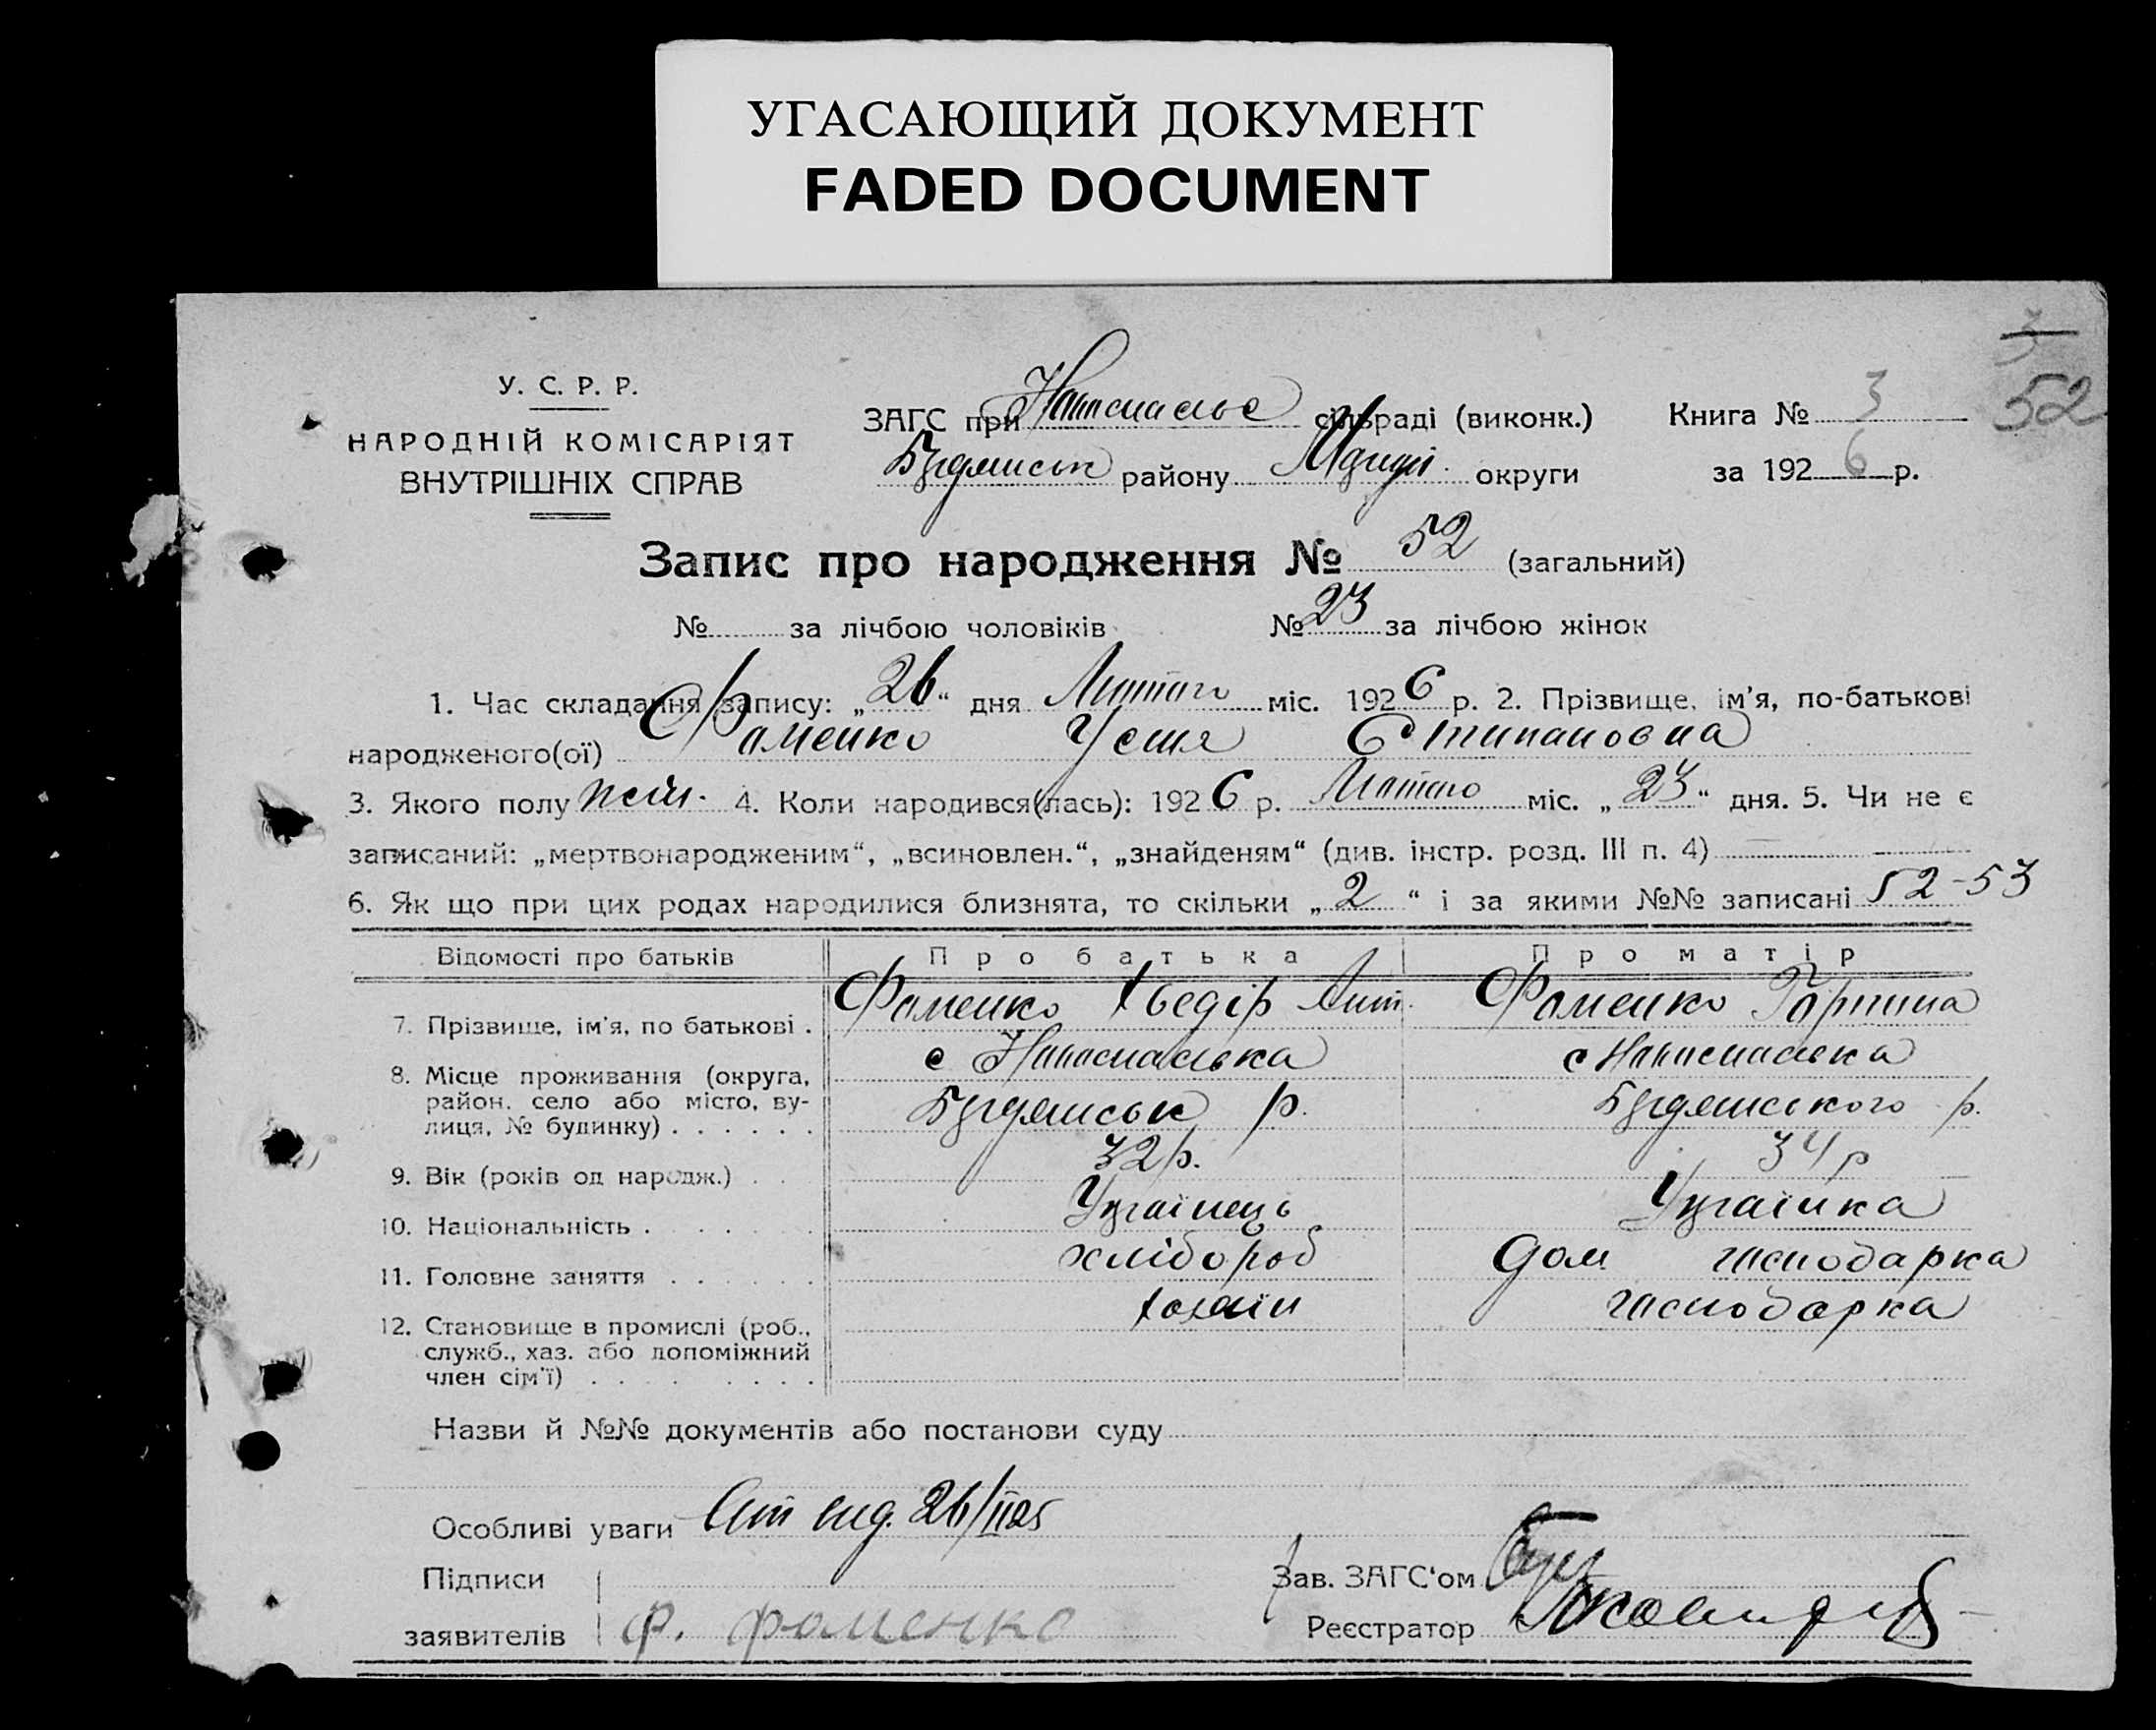 УГАСАЮЩИЙ ДОКУМЕНТ
FADED DOCUMENT
3
52
У. С. Р. Р.
НАРОДНІЙ КОМІСАРІЯТ
ВНУТРІШНІХ СПРАВ
ЗАГС при сільраді (виконк.) Книга № 3
району округи за 1926 р.
Запис про народження № 52 (загальний)
№ за лічбою чоловіків № 23 за лічбою жінок
1. Час складання запису: „26“ дня Лютого міс. 1926 р. 2. Прізвище, ім'я, по-батькові
народженого(ої) Фоменко Устя
3. Якого полу жін. 4. Коли народився(лась): 1926 р. Лютого міс. „23“ дня. 5. Чи не є
записаний: „мертвонародженим“, „всиновлен.“, „знайденям“ (див. інстр. розд. III п. 4)
6. Як що при цих родах народилися близнята, то скільки „2“ і за якими №№ записані 52-53
Відомості про батьків Про батька Про матір
7. Прізвище, ім'я, по батькові . Фоменко Хведір Ант. Фоменко Горпина
8. Місце проживання (округа,
район, село або місто, ву-
лиця, № будинку) . . . . . . р. р.
9. Вік (років од народж.) . . 32 р. 34 р
10. Національність . . . . . . Українець Українка
11. Головне заняття . . . . . . хлібороб дом господарка
12. Становище в промислі (роб.,
служб., хаз. або допоміжний
член сім'ї) . . . . . . . . хазяїн господарка
Назви й №№ документів або постанови суду
Особливі уваги 26/II
Підписи
заявителів Ф. Фоменко
Зав. ЗАГС'ом
Реєстратор